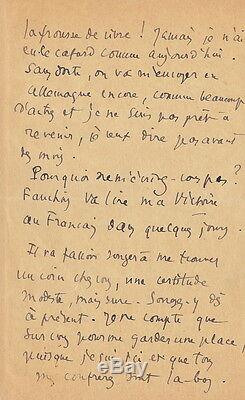 la frousse de vivre ! Jamais je n'ai
eu le cafard comme aujourd'hui.
Sans doute, on va m'envoyer en
Allemagne encore, comme beaucoup
d'autres et je ne suis pas prêt à
revenir, je veux dire pas avant
des mois.
Pourquoi ne m'écrivez-vous pas ?
Fauchois va lire ma Victoire
au Français dans quelques jours.
Il va falloir songer à me trouver
un coin chez vous, une certitude
modeste, mais sure. Songez-y dès
à présent. Je ne compte que
sur vous pour me garder une place,
puisque je suis ici et que tous
mes confrères sont là-bas